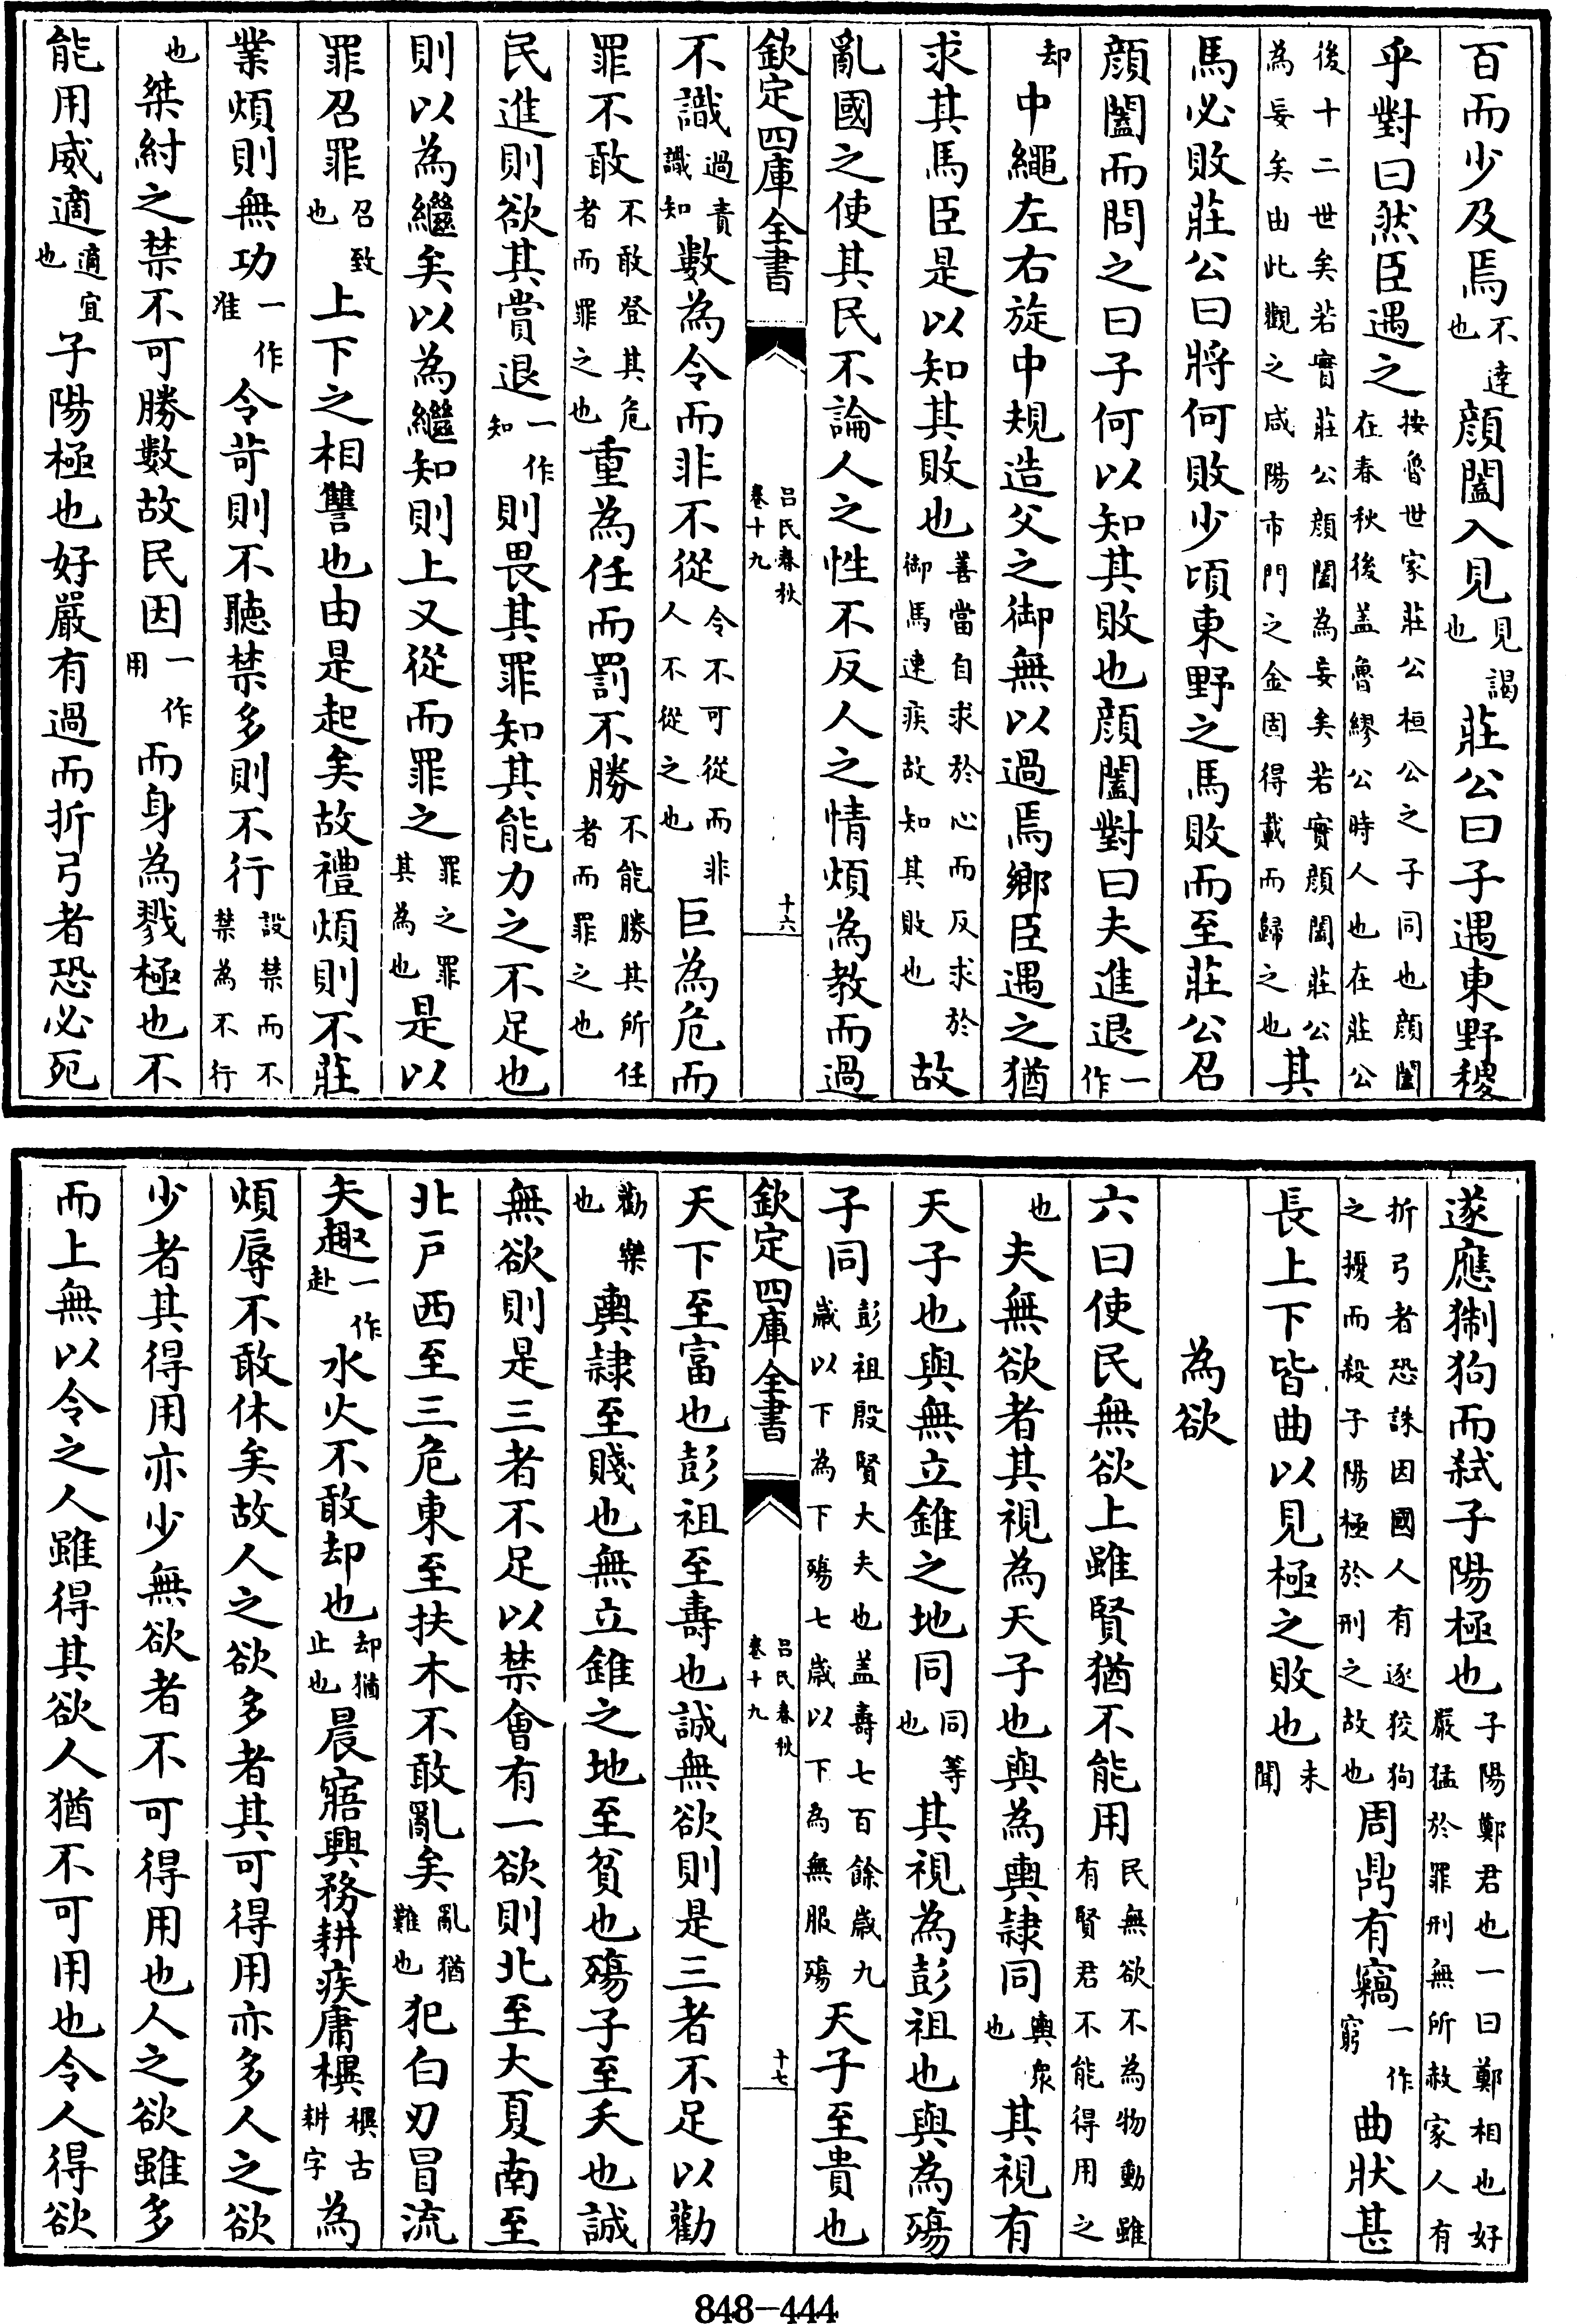 百而少及焉不達也顔闔入見見謁也莊公曰子遇東野稷
乎對曰然臣遇之按魯世家莊公桓公之子同也顔闔在春秋後盖魯繆公時人也在莊公
後十二世矣若實莊公顔闔為妄矣若實顔闔莊公為妄矣由此觀之咸陽市門之金固得載而歸之也其
馬必敗莊公曰將何敗少頃東野之馬敗而至莊公召
顔闔而問之曰子何以知其敗也顔闔對曰夫進退一作
却中繩左右旋中規造父之御無以過焉鄉臣遇之猶
求其馬臣是以知其敗也善當自求於心而反求於御馬速疾故知其敗也故
亂國之使其民不論人之性不反人之情煩為教而過
欽定四庫全書 吕氏春秋卷十九 十六
不識過責識知數為令而非不從令不可從而非人不從之也巨為危而
罪不敢不敢登其危者而罪之也重為任而罰不勝不能勝其所任者而罪之也
民進則欲其賞退一作知則畏其罪知其能力之不足也
則以為繼矣以為繼知則上又從而罪之罪之罪其為也是以
罪召罪召致也上下之相讐也由是起矣故禮煩則不莊
業煩則無功一作准令苛則不聽禁多則不行設禁而不禁為不行
也桀紂之禁不可勝數故民因一作用而身為戮極也不
能用威適適宜也子陽極也好嚴有過而折弓者恐必死
遂應猘狗而弒子陽極也子陽鄭君也一曰鄭相也好嚴猛於罪刑無所赦家人有
折弓者恐誅因國人有逐狡狗之擾而殺子陽極於刑之故也周鼎有竊一作窮曲狀甚
長上下皆曲以見極之敗也未聞
為欲
六曰使民無欲上雖賢猶不能用民無欲不為物動雖有賢君不能得用之
也夫無欲者其視為天子也與為輿隷同輿衆也其視有
天子也與無立錐之地同同等也其視為彭祖也與為殤
子同彭祖殷賢大夫也盖壽七百餘歲九歲以下為下殤七歲以下為無服殤天子至貴也
欽定四庫全書 吕氏春秋卷十九 十七
天下至富也彭祖至壽也誠無欲則是三者不足以勸
勸樂也輿隷至賤也無立錐之地至貧也殤子至夭也誠
無欲則是三者不足以禁會有一欲則北至大夏南至
北户西至三危東至扶木不敢亂矣亂猶難也犯白刃冒流
矢趣一作赴水火不敢却也却猶止也晨寤興務耕疾庸𣙙𣙙古耕字為
煩辱不敢休矣故人之欲多者其可得用亦多人之欲
少者其得用亦少無欲者不可得用也人之欲雖多
而上無以令之人雖得其欲人猶不可用也令人得欲
848-444